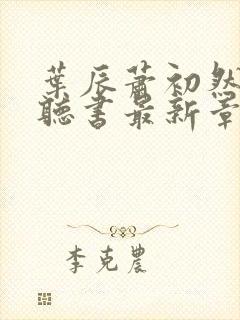 葉辰蕭初然
聽書最新章
李克農